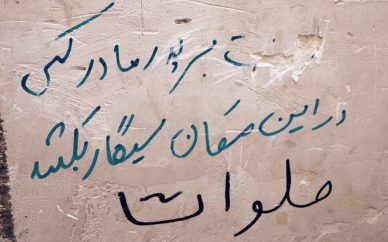 لعنت بر پدر و مادر کسی
در این مکان سیگار بکشد
صلوات